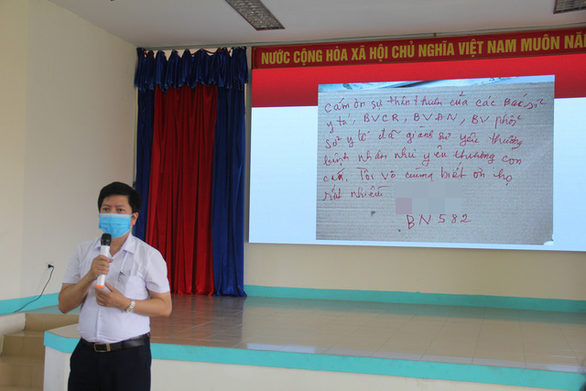 NƯỚC CỘNG HÒA XÃ HỘI CHỦ NGHĨA VIỆT NAM MUÔN NĂM
Cảm ơn sự thân thiện của các Bác sĩ
y tế, BVCR, BVĐN, BV phổi
Sở y tế đã giành sự yêu thương
bệnh nhân như yêu thương con
Tôi vô cùng biết ơn họ
rất nhiều
BN 582